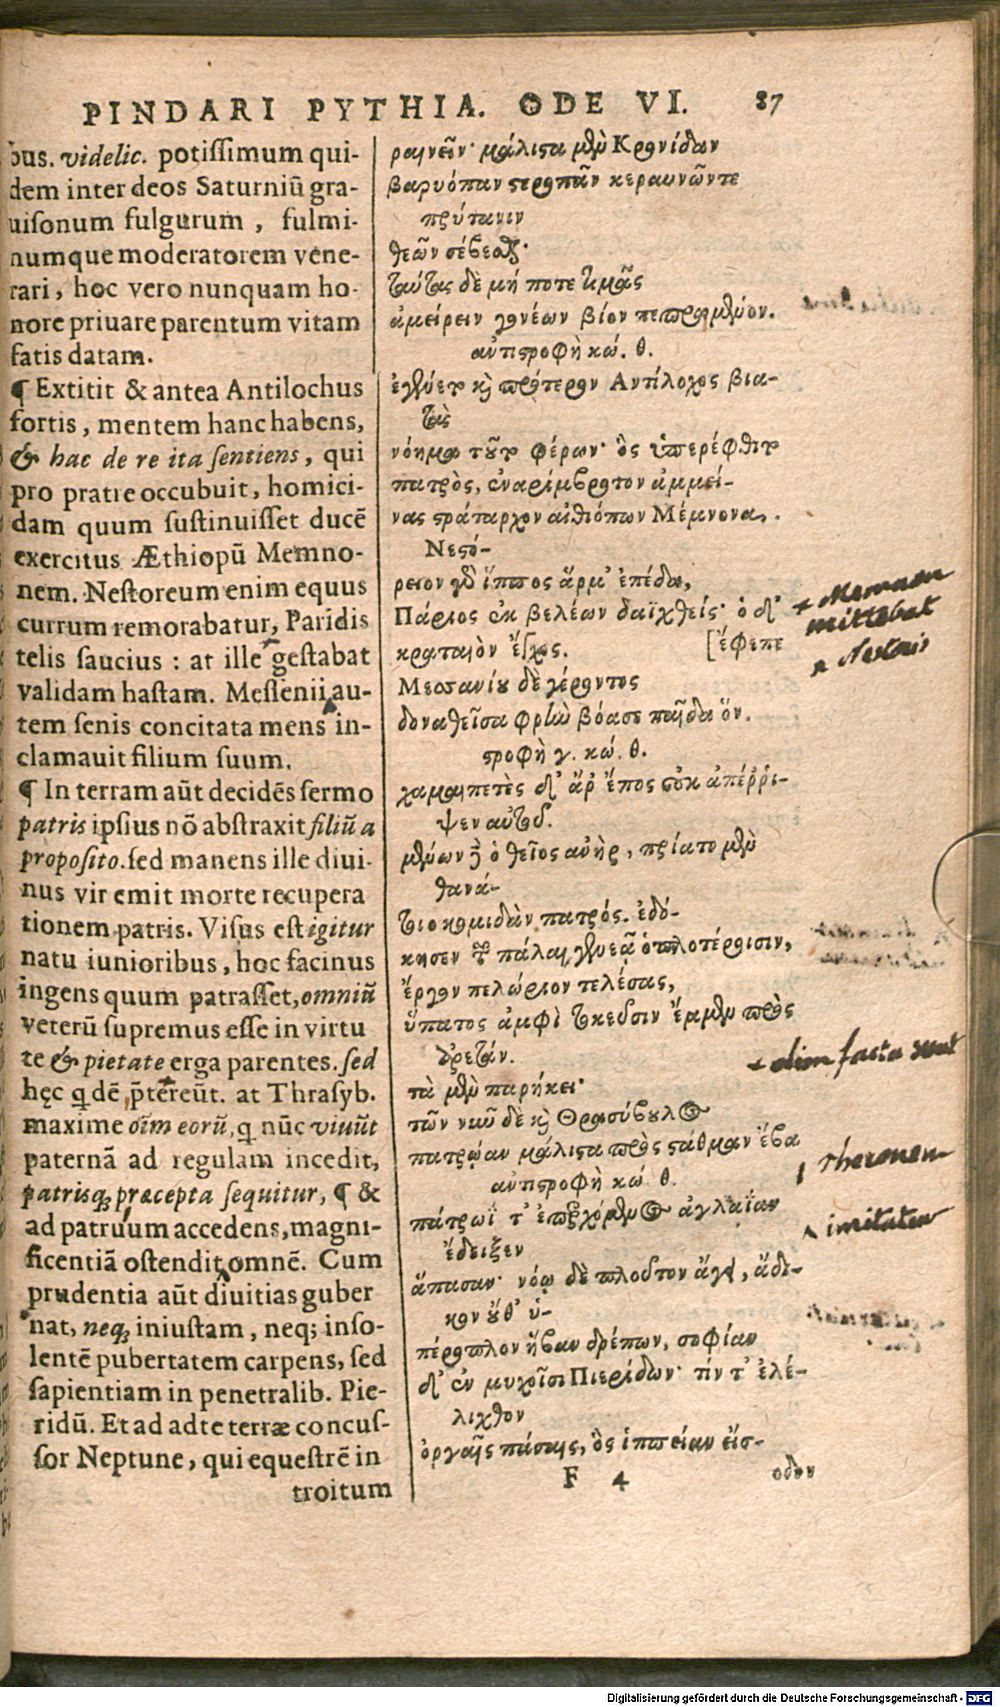 PINDARI PYTHIA. ODE VI. 87
bus. videlic. potissimum qui-
dem inter deos Saturniũ gra-
uisonum fulgurum, fulmi-
numque moderatorem vene-
rari, hoc vero nunquam ho-
nore priuare parentum vitam
fatis datam.
¶ Extitit & antea Antilochus
fortis, mentem hanc habens,
& hac de re ita sentiens, qui
pro pratre occubuit, homici-
dam quum sustinuisset ducẽ
exercitus Æthiopũ Memno-
nem. Nestoreum enim equus
currum remorabatur, Paridis
telis saucius: at ille gestabat
validam hastam. Messenii au-
tem senis concitata mens in-
clamauit filium suum.
¶ In terram aũt decidẽs sermo
patris ipsius nõ abstraxit filiũ a
proposito. sed manens ille diui-
nus vir emit morte recupera
tionem patris. Visus est igitur
natu iunioribus, hoc facinus
ingens quum patrasset, omniũ
veterũ supremus esse in virtu
te & pietate erga parentes. sed
hęc qdẽ p̃tereũt. at Thrasyb.
maxime oĩm eorũ, q nũc viuũt
paternã ad regulam incedit,
patrisq; præcepta sequitur, ¶ &
ad patruum accedens, magni-
ficentiã ostendit omnẽ. Cum
prudentia aũt diuitias guber
nat, neq; iniustam, neq; inso-
lentẽ pubertatem carpens, sed
sapientiam in penetralib. Pie-
ridũ. Et ad adte terræ concus-
sor Neptune, qui equestrẽ in
troitum
ραινεῖν· μάλιστα μὲν Κρονίδαν
βαρυόπαν στεροπᾶν κεραυνῶντε
πρύτανιν
θεῶν σέβεσθαι·
ταύτας δὲ μή ποτε τιμᾶς
ἀμείρειν γονέων βίον πεπρωμένον.
ἀντιστροφὴ κώ. θ.
ἐγένετο καὶ πρότερον Ἀντίλοχος βια-
τὰς
νόημα τοῦτο φέρων· ὃς ὑπερέφθιτο
πατρὸς, ἐναρίμβροτον ἀμμεί-
νας στράταρχον αἰθιόπων Μέμνονα.
Νεστό-
ρειον γὰρ ἵππος ἅρμ' ἐπέδα,
Πάριος ἐκ βελέων δαϊχθείς· ὁ δ'
κραταιὸν ἔγχος. [ἔφεπε
Μεσσανίου δὲ γέροντος
δοναθεῖσα φρὴν βόασε παῖδα ὅν.
στροφὴ γ. κώ. θ.
χαμαιπετὲς δ' ἄρ' ἔπος οὐκ ἀπέρρι-
ψεν αὐτοῦ.
μένων δ' ὁ θεῖος ἀνὴρ, πρίατο μὲν
θανά-
τοιο κομιδὰν πατρός. ἐδό-
κησεν τῶν πάλαι γενεᾷ ὁπλοτέροισιν,
ἔργον πελώριον τελέσας,
ὕπατος ἀμφὶ τοκεῦσιν ἔμμεν πρὸς
ἀρετάν.
τὰ μὲν παρήκει·
τῶν νῦν δὲ καὶ Θρασύβουλος
πατρῴαν μάλιστα πρὸς στάθμαν ἔβα
ἀντιστροφὴ κώ θ.
πάτρωΐ τ' ἐπερχόμενος ἀγλαΐαν
ἔδειξεν
ἅπασαν· νόῳ δὲ πλοῦτον ἄγει, ἄδι-
κον οὔθ' ὑ-
πέροπλον ἥβαν δρέπων, σοφίαν
δ' ἐν μυχοῖσι Πιερίδων· τίν τ' ἐλέ-
λιχθον
ὀργαῖς πάσαις, ὃς ἱππείαν εἴσ-
F 4 οδον
+ Memnon
mittebat
Nestoris
+ olim facta sunt
Theronem
imitatur
Digitalisierung gefördert durch die Deutsche Forschungsgemeinschaft - DFG